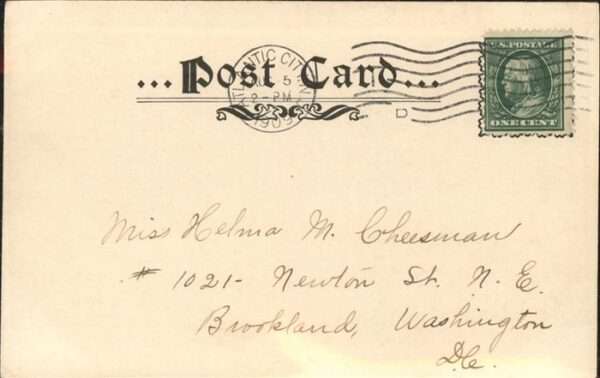 ...Post Card...
ATLANTIC CITY
5
PM
1909
U.S. POSTAGE
ONE CENT
D
Miss Helma M. Cheesman
# 1021- Newton St. N. E.
Brookland, Washington
D.C.